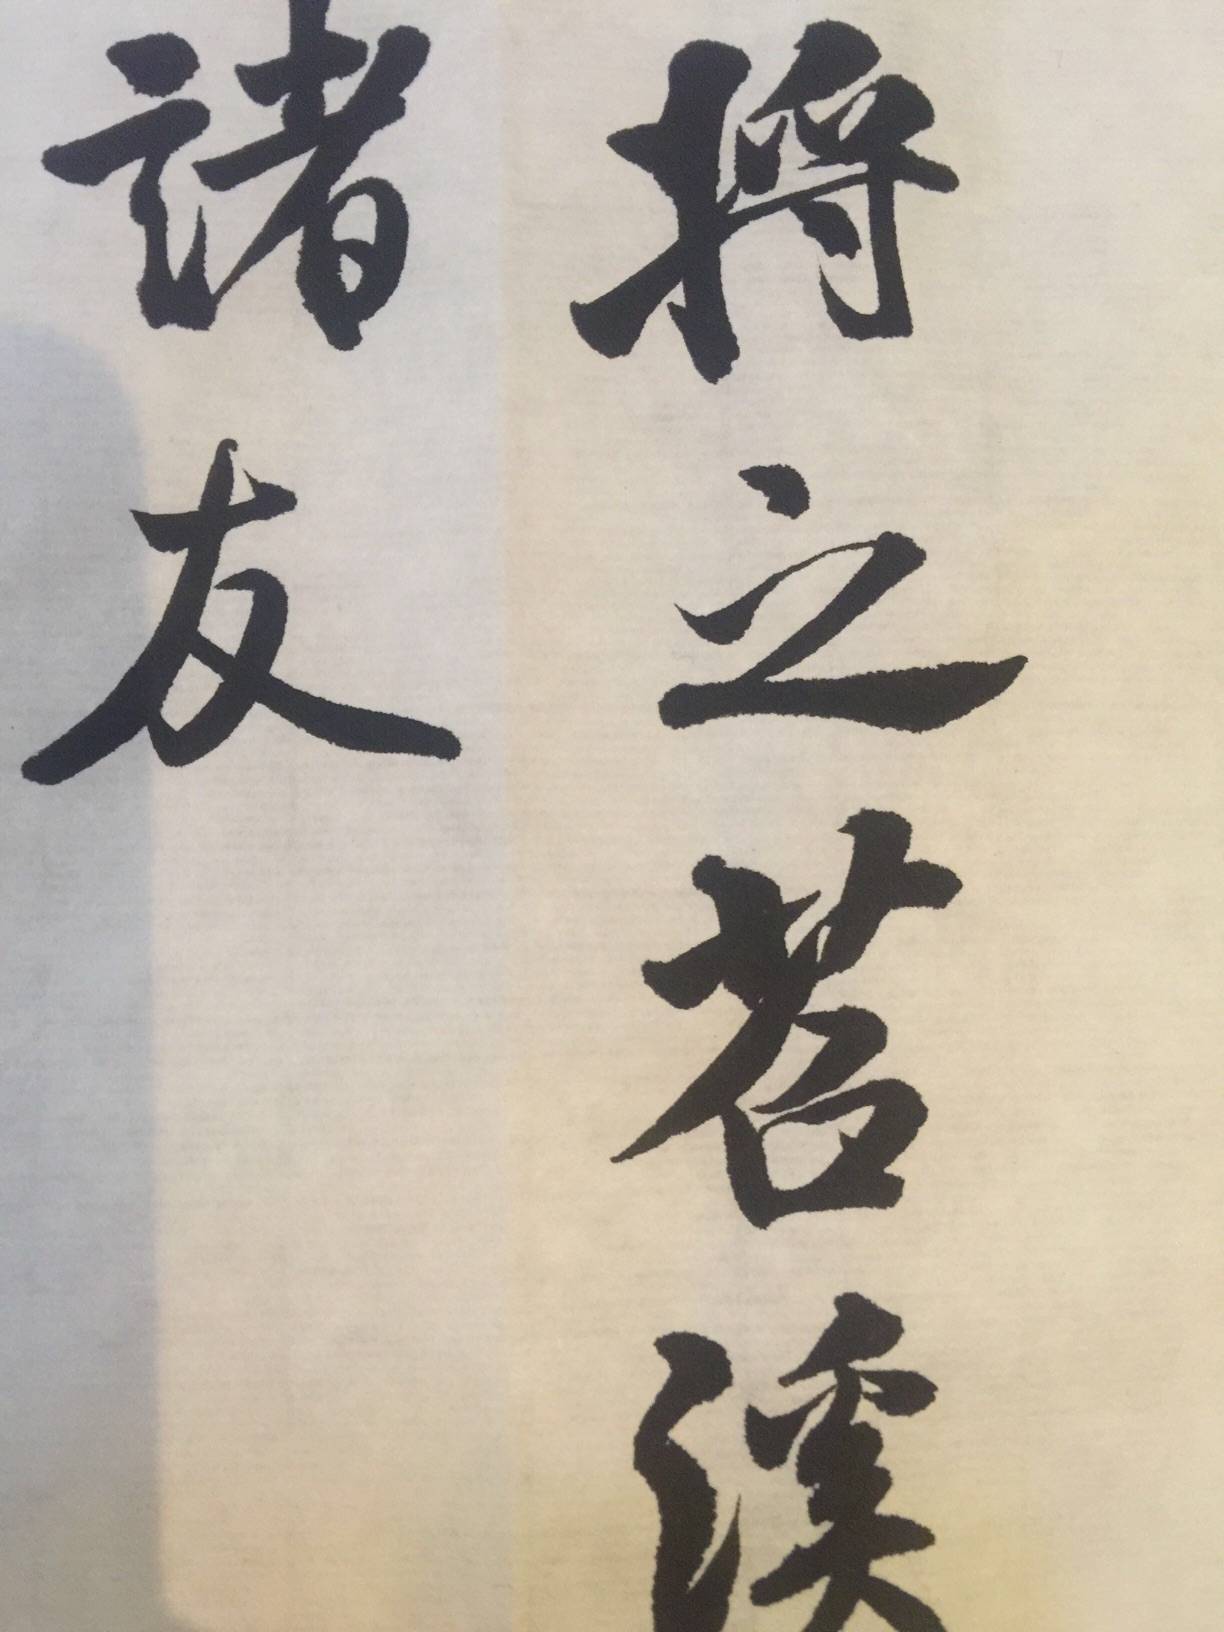 將之苕溪
諸友